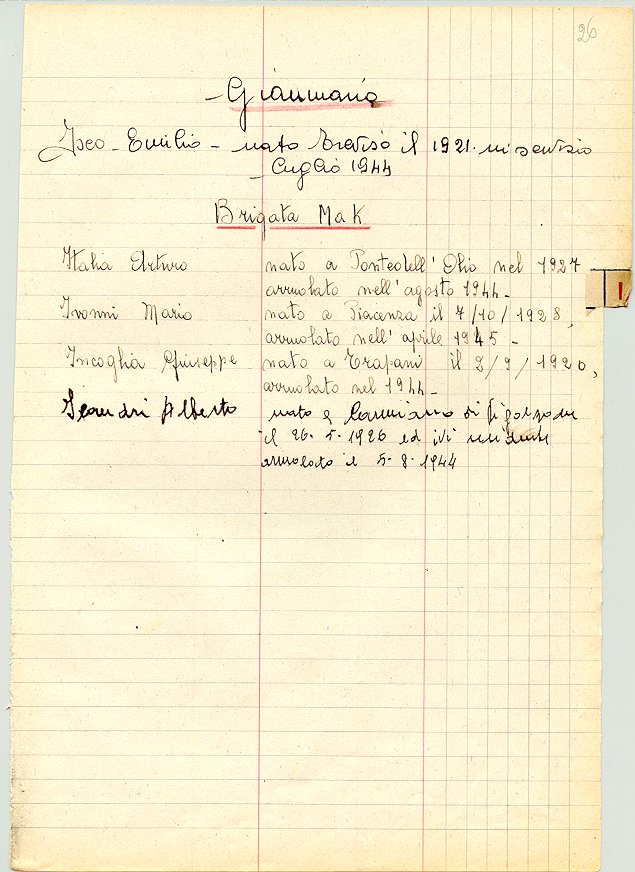 26
- Gianmaria
Iseo - Emilio - nato Treviso il 1921. in servizio
- Luglio 1944
Brigata Mak
Italia Arturo nato a Pontedell'Olio nel 1927
arruolato nell'agosto 1944 -
Ivonni Mario nato a Piacenza il 7/10/1928,
arruolato nell'aprile 1945 -
Incoglia Giuseppe nato a Trapani il 2/9/1920,
arruolato nel 1944 -
I
Alberto nato a di
il 26-5-1926 ed ivi residente
arruolato il 5-8-1944